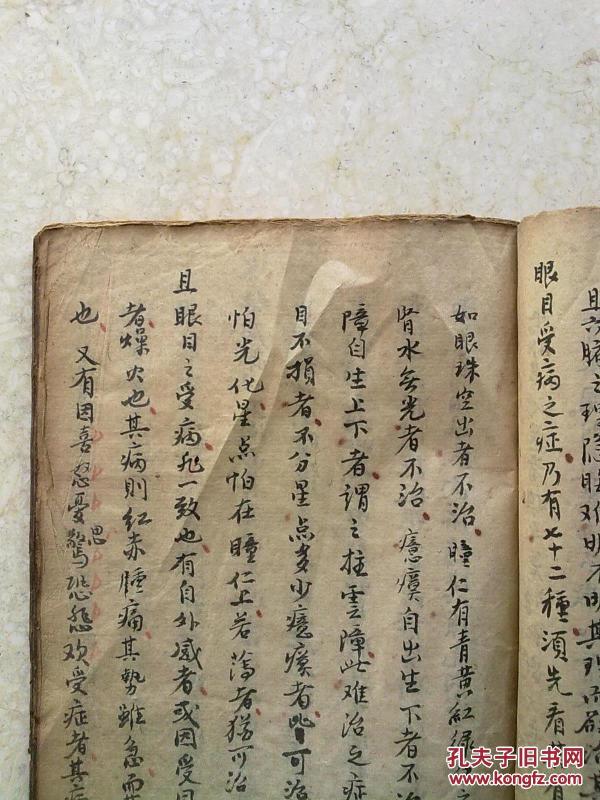 且六腑之理隐
眼目受病之症乃有七十二種須先看
如眼珠空出者不治瞳仁有青黄紅綠
肾水无光者不治 瘾瘼自出生下者不治
障自生上下者謂之拄雲障此难治之症
目不損者不分星点多少瘾瘼者 可治
怕光化星点怕在瞳仁上若薄者猶可治
且眼目之受病非一致也有自外感者或因受風
者燥火也其病則红赤腫痛其勢雖急而
也又有因喜怒憂思驚恐 欢受症者其症
孔夫子旧书网
www.kongfz.com